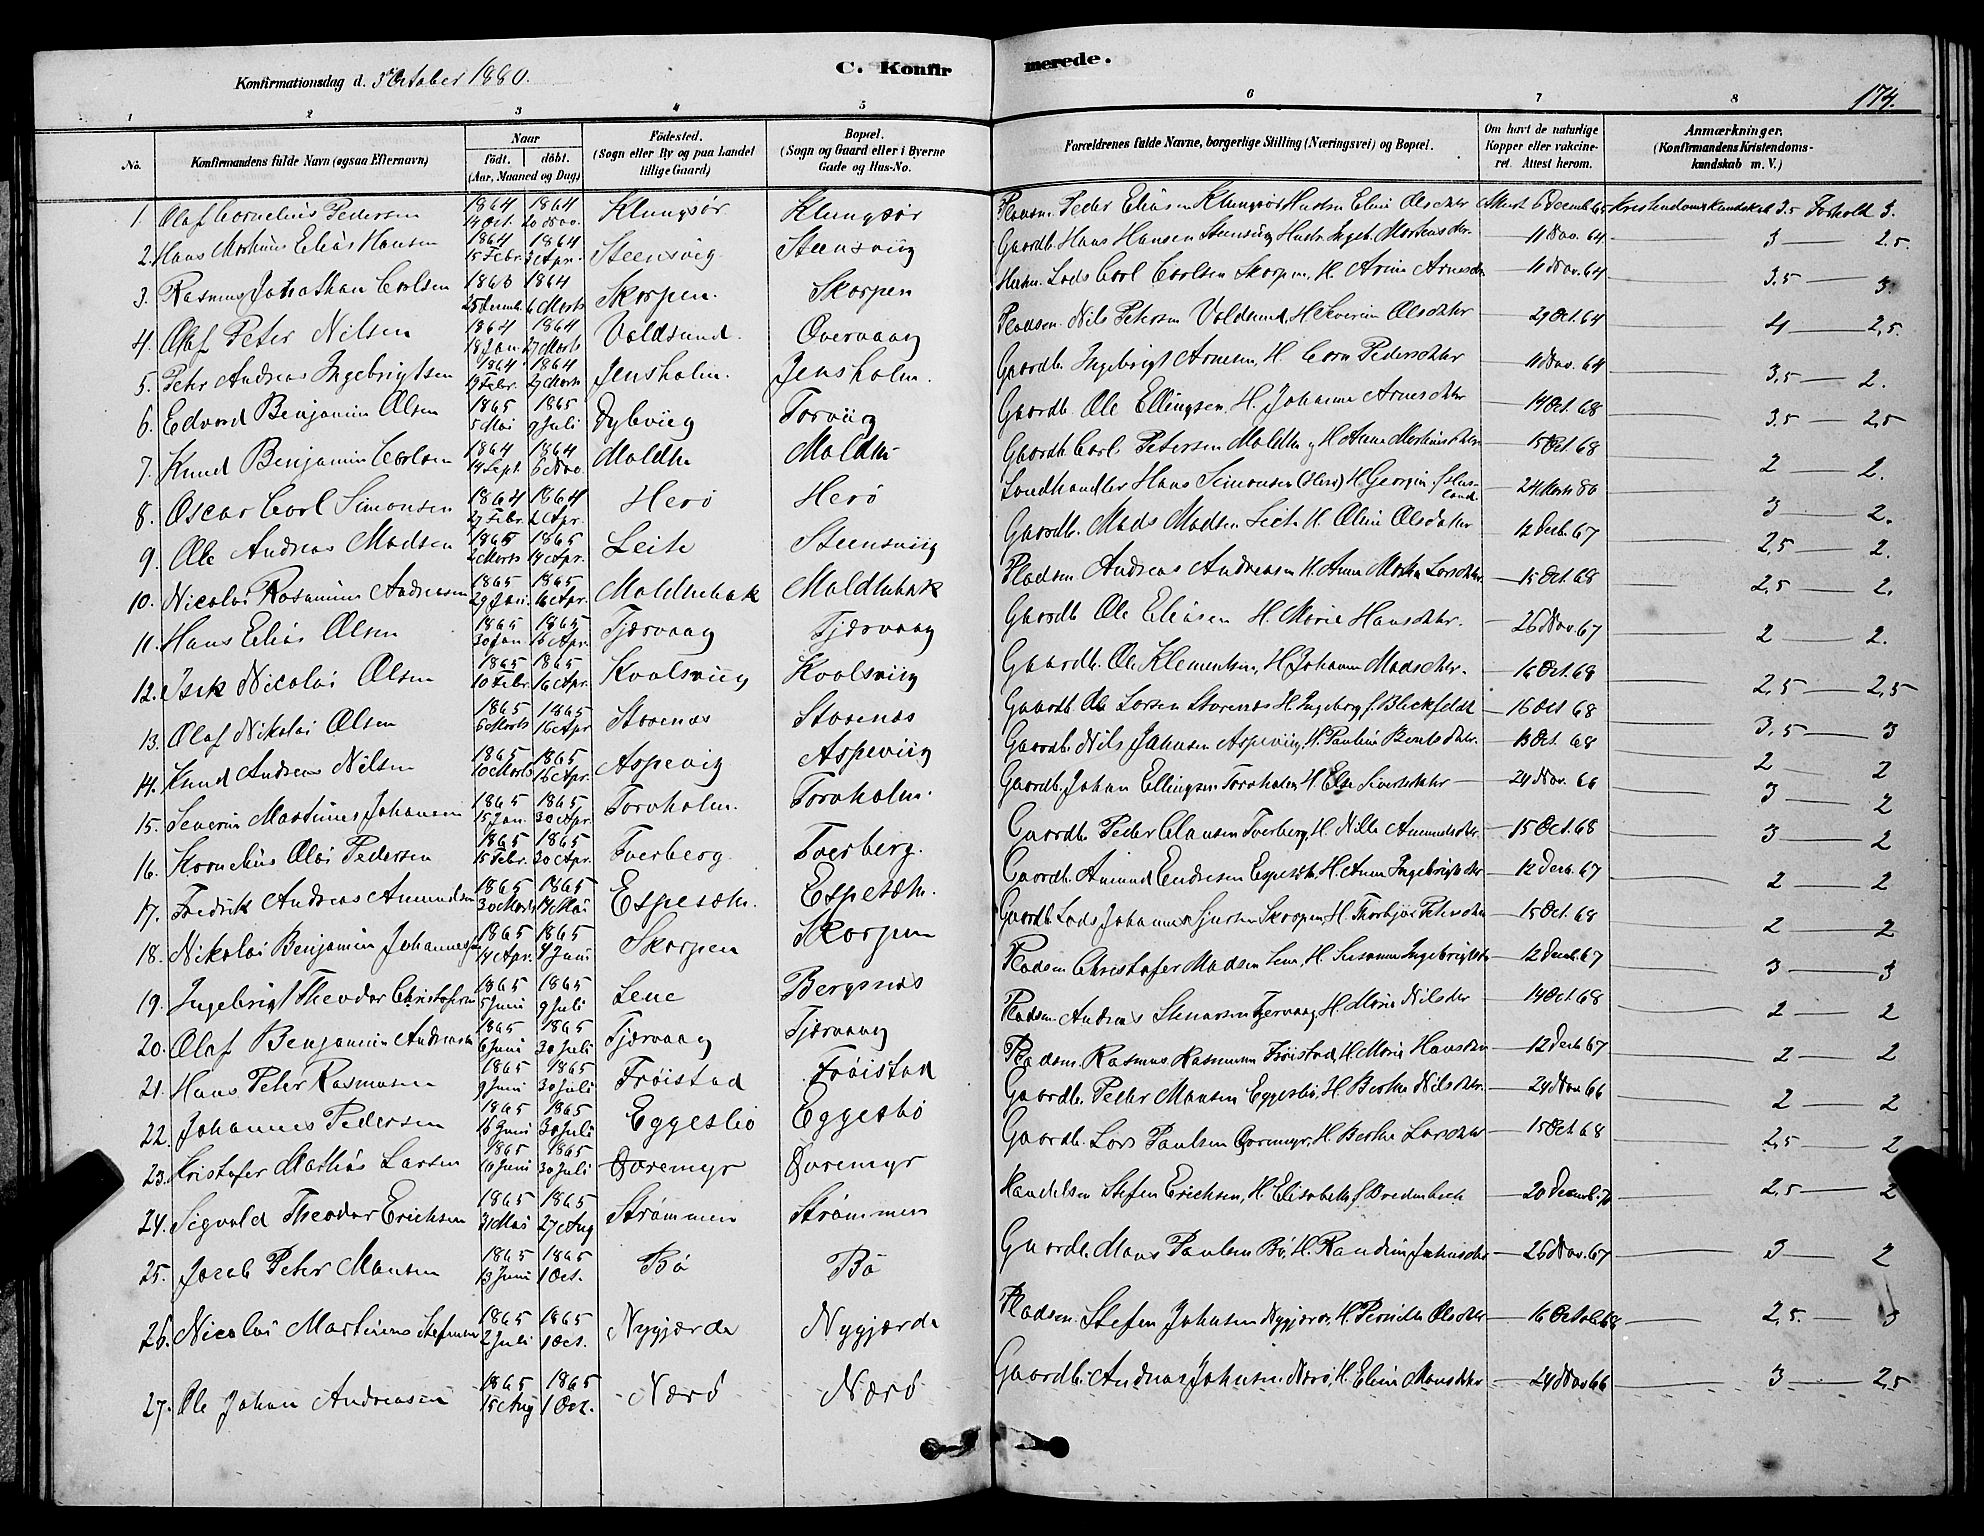 Konfirmationsdag d. 3 October 1880.
C. Konfirmerede.
174.
1 2 3 4 5 6 7 8
No. Konfirmandens fulde Navn (ogsaa Efternavn) Naar født. døbt. (Aar, Maaned og Dag) Fødested. (Sogn eller By og paa Landet tillige Gaard) Bopæl. (Sogn og Gaard eller i Byerne Gade og Hus-No.) Forældrenes fulde Navne, borgerlige Stilling (Næringsvei) og Bopæl. Om havt de naturlige Kopper eller vakcineret. Attest herom. Anmærkninger. (Konfirmandens Kristendomskundskab m. V.)
1. Olaf Cornelius Pedersen 1864 14 Oct. 1864 20 Nov. Klungsør Klungsør Pladsm. Peder Eliasen Klungsør Hustru Eline Olsdtter Attest 6 Decemb 65 Kristendomskundskab 3.5 Forhold 3.
2. Hans Martinus Elias Hansen 1864 15 Febr. 1864 3 Apr. Steensvig Steensviig Gaardb. Hans Hansen Steensvig Hustr. Ingeb. Mortensdtr. 11 Nov. 64 3 — 2.5.
3. Rasmus Johathan Carlsen 1863 25 Decemb. 1864 6 Marts Skorpen. Skorpen Lods Carl Carlsen Skorpen, H. Arnesdtr 11 Nov. 64 3.5 — 3.
4. Olaf Peter Nilsen 1864 18 Jan. 1864 27 Marts Voldsund. Overvaag Pladsm. Nils Petersen Voldsund, H. Severine Olsdtter 29 Oct. 64 4 — 2,5.
5. Peter Andreas Ingebrigtsen 1864 19 Febr. 1864 27 Marts Jensholm. Jensholm. Gaardb. Ingebrigt Arnesen, H. Pedersdtter 11 Nov. 64 3,5 — 2.
6. Edvard Benjamin Olsen 1865 5 Mai 1865 9 Juli Dybviig Torviig Gaardb. Ole Ellingsen, H. Johanne Arnesdtter 14 Oct. 68 3.5 — 2,5
7. Knud Benjamin Carlsen 1864 14 Sept. 1864 6 Nov. Moldtu Moldtu Gaardb. Carl Petersen Moldtu H. Anne 15 Oct. 68 2 — 2.
8. Oscar Carl Simonsen 1864 27 Febr. 1864 2 Apr. Herø Herø Landhandler Hans Simonsen (Herø) H. f. 24 Marts 80 3 — 2.
9. Ole Andreas Madsen 1865 2 Marts 1865 14 Apr. Leite Steensviig Gaardb. Mads Madsen Leite H. Oline Olsdatter 12 Decb. 67 2,5 — 2.
10. Nicolai Rasmus Andreasen 1865 29 Jan. 1865 16 Apr. Moldtubak Moldtubak Pladsm. Andreas Andreasen H. Anne Marthe Larsdtter 15 Oct. 68 2,5 — 2.
11. Hans Elias Olsen 1865 30 Jan. 1865 16 Apr. Tjærvaag Tjærvaag Gaardb. Ole Eliasen H. Marie Hansdtter. 26 Nov. 67 2 — 2.
12. Isak Nicolai Olsen 1865 10 Febr. 1865 16 Apr. Kvalsviig Kvalsviig Gaardb. Ole Klementsen, H. Johanne Madsdtter. 16 Oct. 68 2,5 — 2,5
13. Olaf Nikolai Olsen 1865 6 Marts 1865 16 Apr Storenæs Storenæs Gaardb. Ole Larsen Storenæs H. Ingeborg f. Blickfeldt 16 Oct 68 3,5 — 3
14. Knud Andreas Nilsen 1865 10 Marts 1865 16 Apr. Aspevig Aspeviig Gaardb. Nils Jahnsen Aspeviig, H. Pauline Bentsdtter. 13 Oct. 68 2 — 2
15. Severin Martinus Johansen 1865 15 Jan. 1865 30 Apr. Torvholm. Torvholm. Gaardb. Johan Ellingsen Torvholm H. Else Sivertsdtter 24 Nov. 66 3 — 2
16. Kornelius Olai Pedersen 1865 15 Febr. 1865 30 Apr. Tverberg. Tverberg. Gaardb. Peder Clausen Tverberg, H. Nille Amundsdtr. 15 Oct. 68 3 — 2
17. Fredrik Andreas Amundsen 1865 30 Marts 1865 14 Mai Espesæter. Espesæter. Gaardb. Amund Endresen Espesæt. H. Anne Ingebrigtsdtr 12 Decb. 67 2 — 2
18. Nikolai Benjamin Johannessen 1865 14 Apr. 1865 4 Juni Skorpen Skorpen Gaardb. Lods Johannes Sjursen Skorpen, H. Thorbjør Petersdtr 15 Oct. 68 2 — 2
19. Ingebrigt Theodor Christofersen 1865 5 Juni 1865 9 Juli Lene Bergsnæs Pladsm. Christofer Madsen Lene, H. Susanne Ingebrigtsdtr 12 Decb. 67 3 — 3
20. Olaf Benjamin Andreasen 1865 6 Juni 1865 30 Juli Tjærvaag Tjærvaag Pladsm. Andreas Stenersen Tjervaag, H. Marie Nilsdtr 14 Oct. 68 2 — 2
21. Hans Peter Rasmusen 1865 9 Juni 1865 30 Juli Frøistad Frøistad Pladsm. Rasmus Rasmusen Frøistad, H. Marie Hansdtr 12 Decb. 67 2 — 2
22. Johannes Pedersen 1865 16 Juni 1865 30 Juli Eggesbø Eggesbø Gaardb. Peder Mansen Eggesbø, H. Berthe Nilsdtr. 24 Nov. 66 2 — 2
23. Kristofer Mathias Larsen 1865 10 Juni 1865 30 Juli Qvremyr Qvremyr Gaardb. Lars Paulsen Qvremyr, H. Berthe Larsdtter 15 Oct. 68 2,5 — 2
24. Sigvald Theodor Erichsen 1865 31 Mai 1865 27 Aug Strømmen Strømmen Handelsm Stefen Erichsen, H. Elisabeth f. Bredenbeck 20 Decemb. 70 2,5 — 2
25. Jacob Peter Mansen 1865 13 Juni 1865 1 Oct. Bø Bø Gaardb. Mans Paulsen Bø, H. Randine Jahnsdtr 26 Nov. 67 3 — 2
26. Nicolai Martinus Stefensen 1865 2 Juli 1865 1 Oct. Nygjærde Nygjærde Pladsm. Stefen Johnsen Nygjærde, H. Pernille Olsdtter 16 October 68 2,5. — 3
27. Ole Johan Andreasen 1865 15 Aug 1865 1 Oct. Nærø Nærø Gaardb. Andreas Johnsen Nærø, H. Eline Mansdtter 24 Nov 66 3 — 2,5